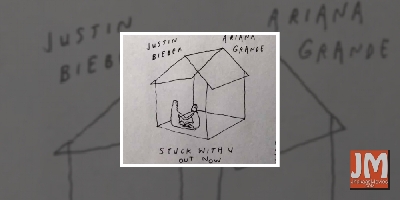 JUSTIN BIEBER
ARIANA GRANDE
JUSTIN BIEBER
ARIANA GRANDE
STUCK WITH U
OUT NOW
JM